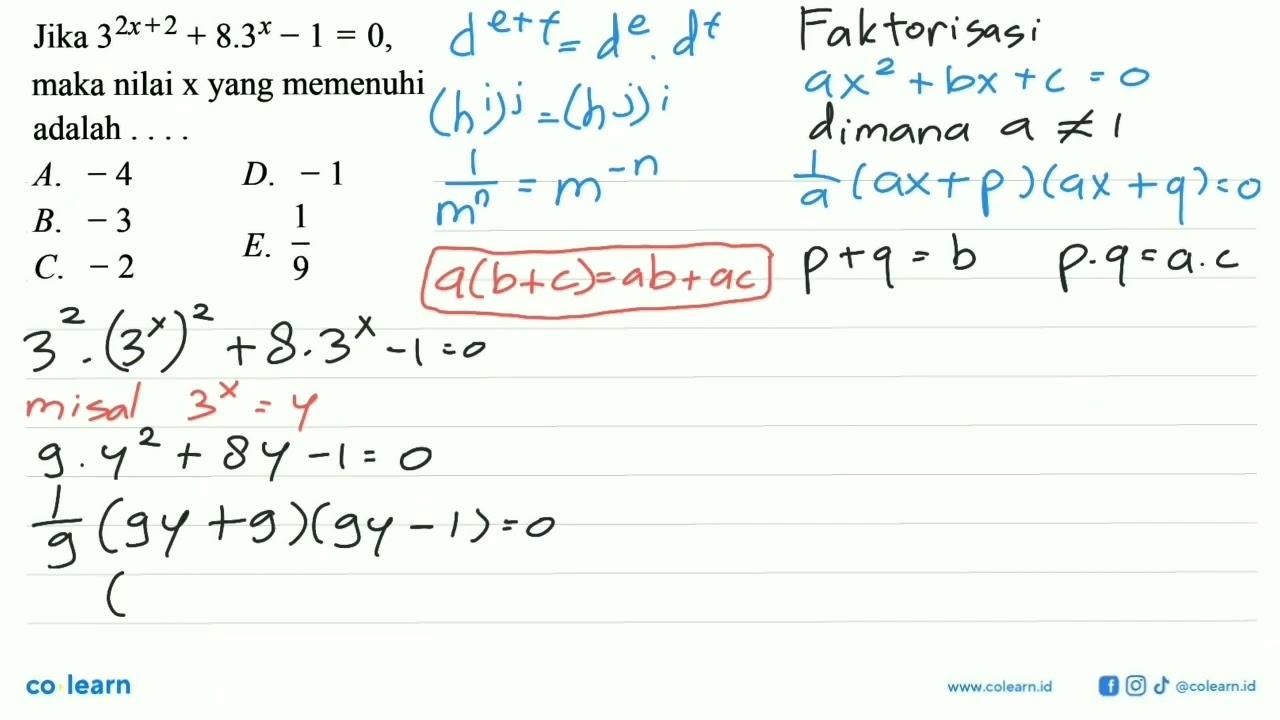 Jika 3^{2x+2} + 8.3^x − 1 = 0,
maka nilai x yang memenuhi
adalah . . . .
A. − 4 D. − 1
B. − 3 E. 1/9
C. − 2
d^{e+f} = d^e . d^f
(h^i)^j = (h^j)^i
1/m^n = m^{−n}
a(b+c)=ab+ac
Faktorisasi
ax² + bx + c = 0
dimana a ≠ 1
1/a (ax+p)(ax+q)=0
p+q = b p.q = a.c
3² . (3^x)² + 8.3^x − 1 = 0
misal 3^x = y
9.y² + 8y − 1 = 0
1/9 (9y + 9)(9y − 1) = 0
(
co learn
www.colearn.id @colearn.id